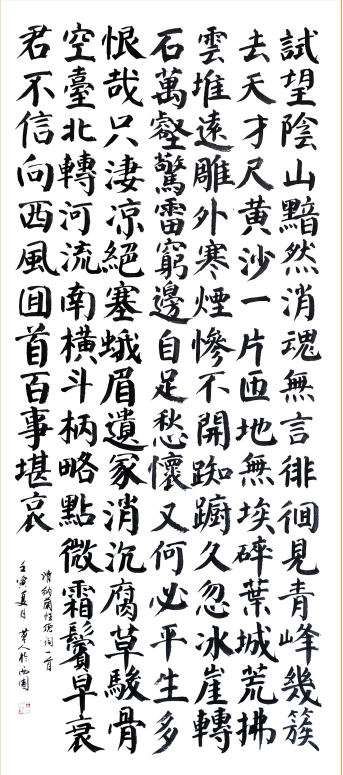 試望陰山黯然消魂無言徘徊見青峰幾簇
去天才尺黄沙一片匝地無埃碎葉城荒拂
雲堆遠雕外寒煙慘不開踟躕久忽冰崖轉
石萬壑驚雷窮邊自足愁懷又何必平生多
恨哉只淒涼絕塞蛾眉遺冢消沉腐草駿骨
空臺北轉河流南橫斗柄略點微霜鬢早衰
君不信向西風囬首百事堪哀
清納蘭性德詞一首
壬寅夏月 人於西園